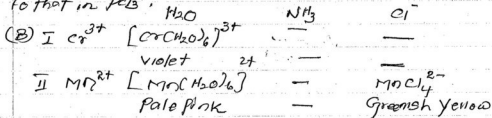 to that in PCl3.
H2O NH3 Cl-
(B) I Cr3+ [Cr(H2O)6]3+ — —
violet — —
II Mn2+ [Mn(H2O)6]2+ — MnCl4 2-
Pale pink — Greenish yellow